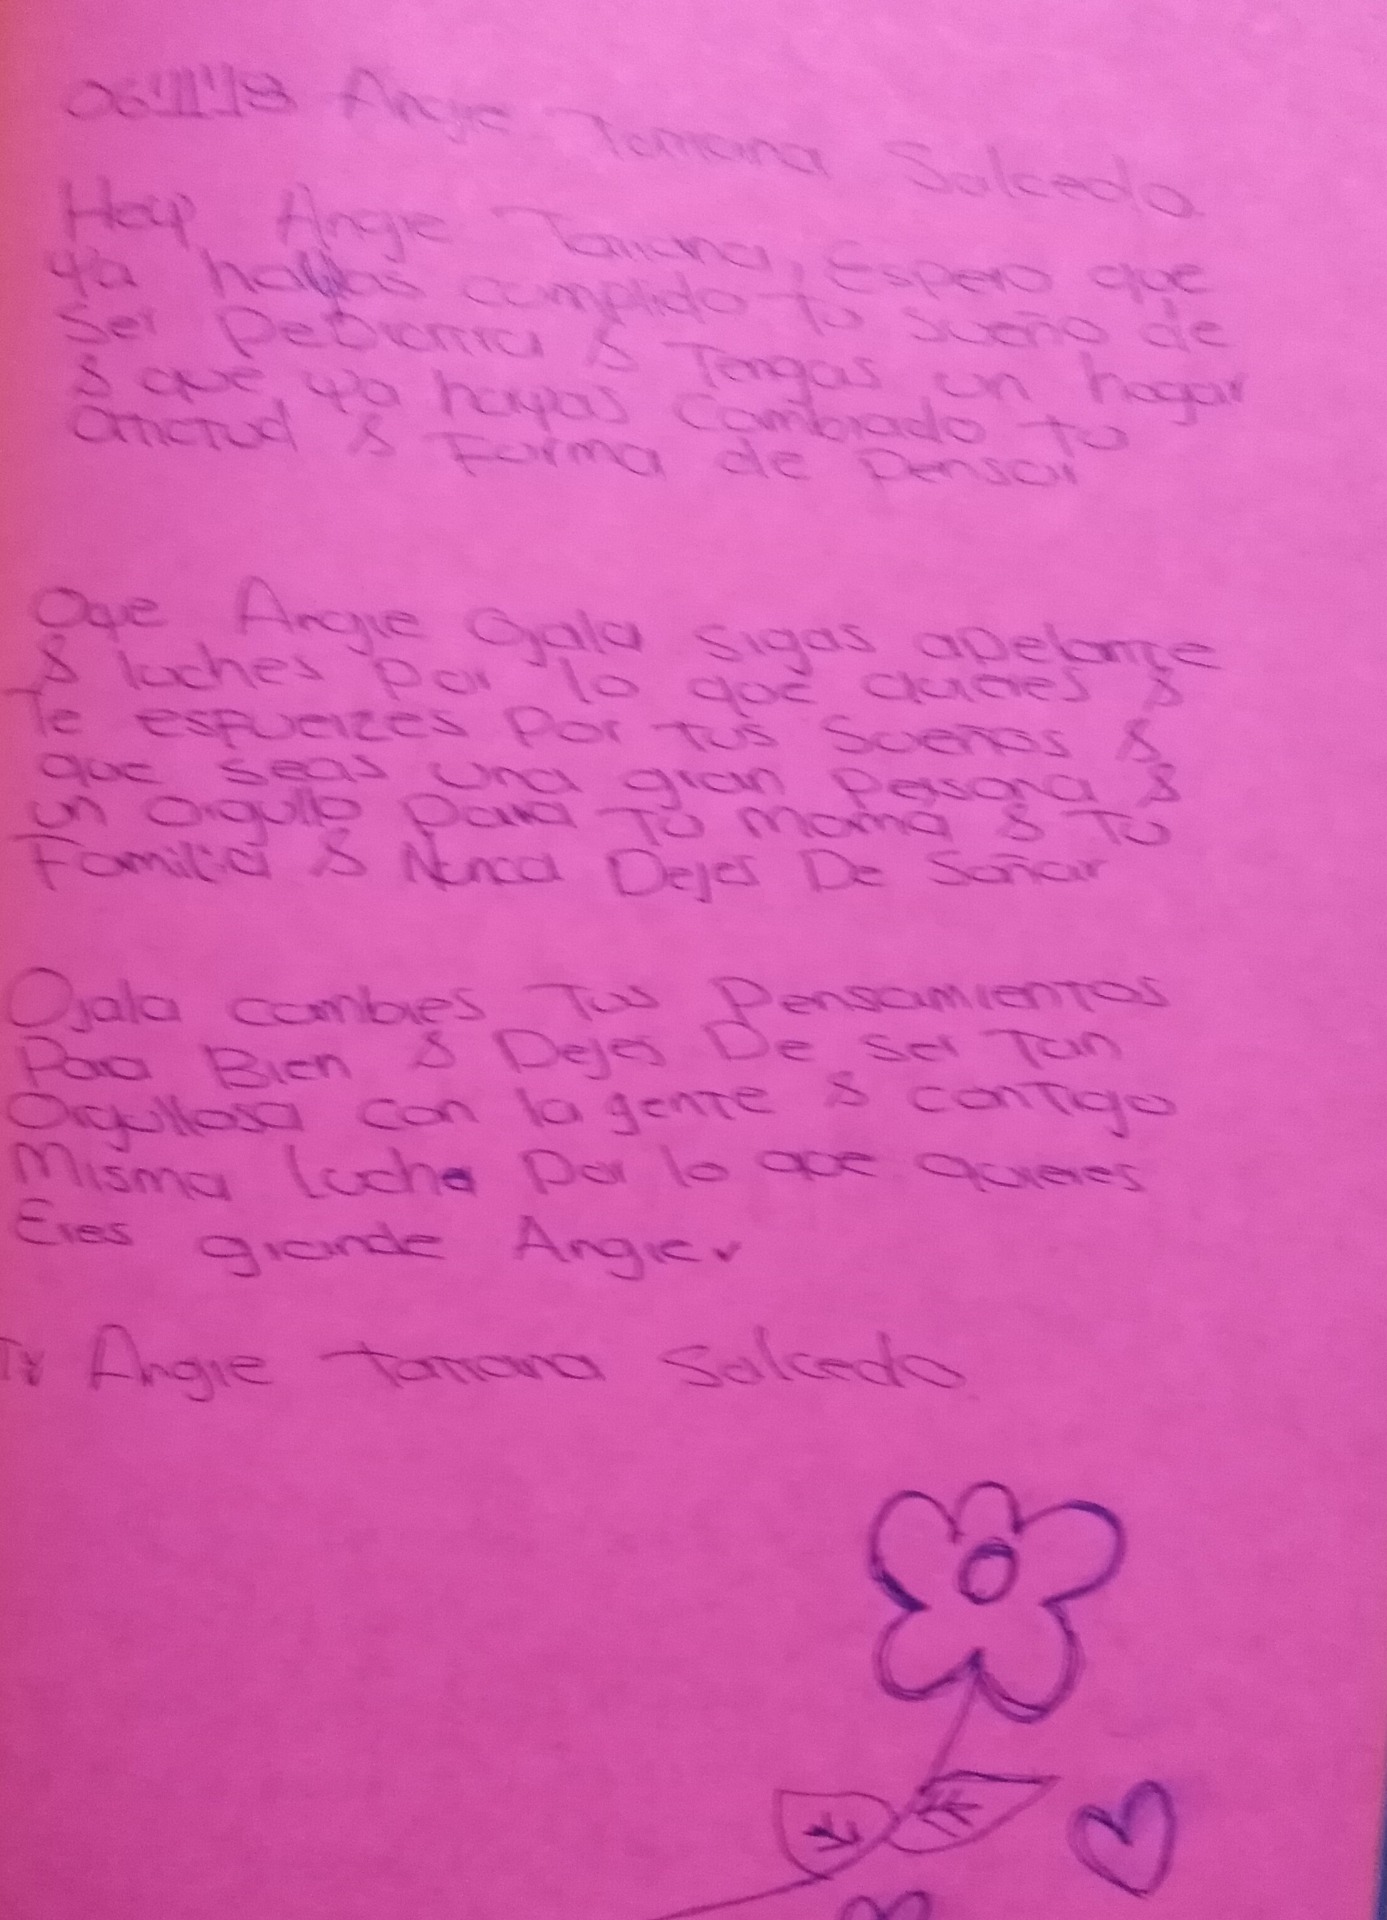 06/11/19 Angie Tamara Salcedo
Hey Angie Tamara, Espero que
ya hayas cumplido tu sueño de
Ser Pediatra & Tengas un hogar
& que ya hayas cambiado tu
actitud & Forma de pensar
Oye Angie Ojala sigas adelante
& luches por lo que quieres &
Te esfuerzes Por tus Sueños &
que seas una gran persona &
un orgullo para Tu mamá & Tu
Familia & Nunca Dejes De Soñar
Ojala cambies Tus Pensamientos
Para Bien & Dejes De ser Tan
Orgullosa con la gente & contigo
Misma lucha por lo que quieres
Eres grande Angie
Angie Tamara Salcedo